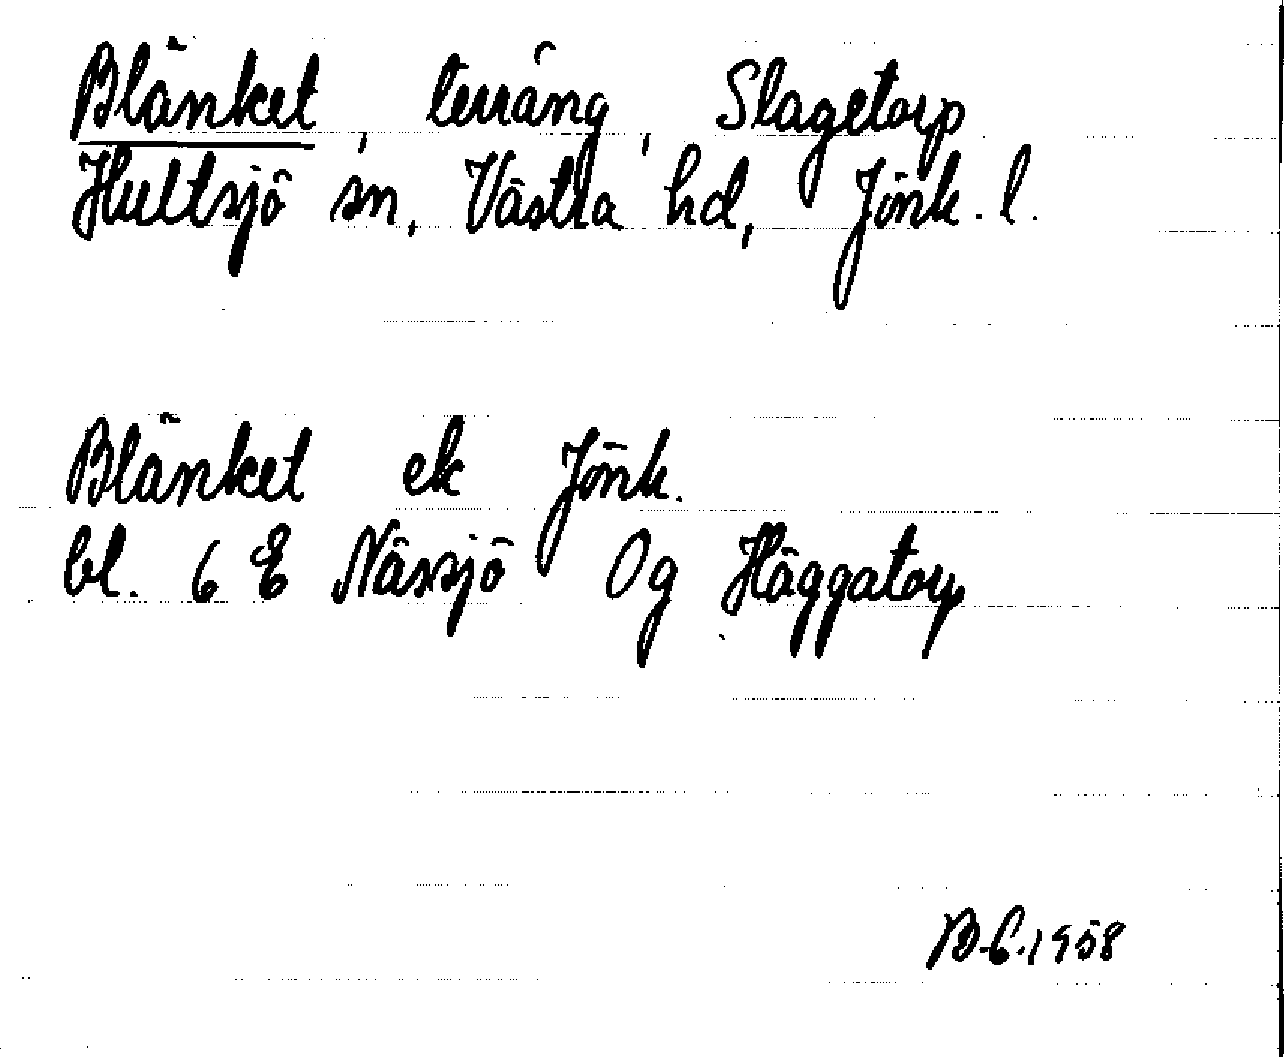 Blänket, terräng, Slagetorp
Hultsjö sn, Västra hd, Jönk. l.
Blänket ek Jönk.
bl. 6 E Nässjö 0g Häggatorp
B-C. 1958